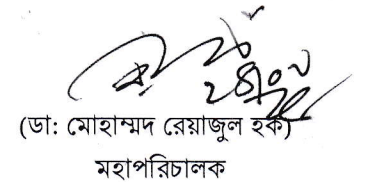 (ডা: মোহাম্মদ রেয়াজুল হক)
মহাপরিচালক